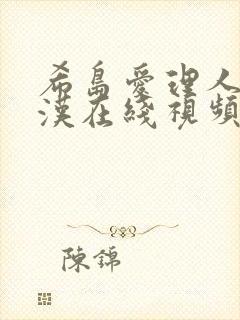 希島愛理人
漢在綫視頻
陳錦